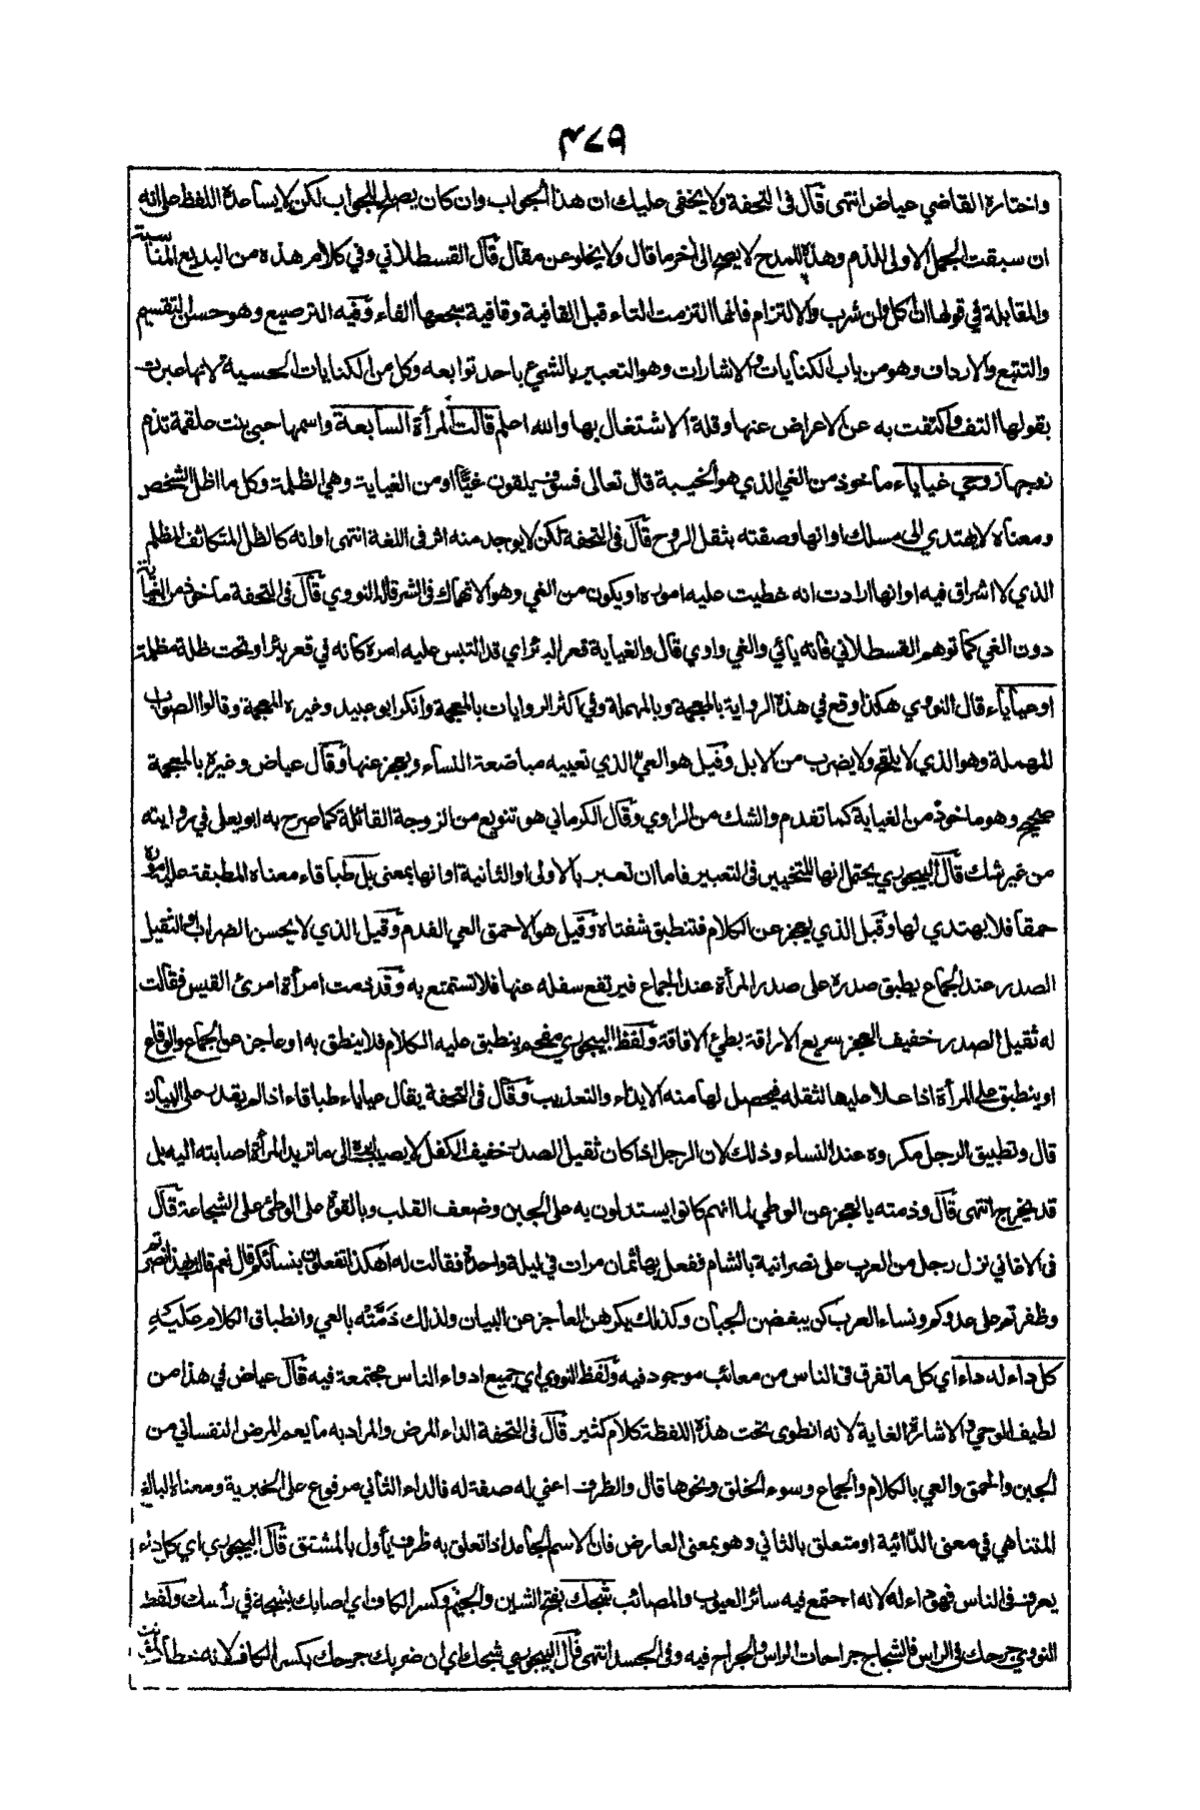 ٣٧٩
واختاره القاضي عياض انتهى قال فى التحفة ولا يخفى عليك ان هذا الجواب وان كان يصلح للجواب لكن لا يساعده اللفظ على انه
ان سبقت الجمل الاولى للذم وهذه للمدح لا يصح الى اخر ما قال ولا يخلو عن مقال قال القسطلاني وفي كلام هذه من البديع المناسبة
والمقابلة في قولها ان اكل وان شرب والالتزام فانها التزمت التاء قبل القافية وقافية سجعها الفاء وفيه الترصيع وهو حسن التقسيم
والتتبع والارداف وهو من باب الكنايات والاشارات وهو التعبير بالشئ باحد توابعه وكل من الكنايات الحسية لانها عبرت
بقولها التف واكتفت به عن الاعراض عنها وقلة الاشتغال بها والله اعلم قالت المرأة السابعة واسمها حبى بنت علقمة تذم
زوجها زوجي غياياء مأخوذ من الغي الذي هو الخيبة قال تعالى فسوف يلقون غيًّا او من الغياية وهي الظلمة وكل ما اظل الشخص
ومعناه لا يهتدي الى مسلك او انها وصفته بثقل الروح قال فى التحفة لكن لا يوجد منه اثر فى اللغة انتهى او انه كالظل المتكاثف المظلم
الذي لا اشراق فيه او انها ارادت انه غطيت عليه اموره او يكون من الغي وهو الانهماك فى الشر قاله النووي قال فى التحفة مأخوذ من الغياية
دون الغي كما توهم القسطلاني فانه يائي والغي واوي قال والغياية قعر البئر اي قد التبس عليه امره كانه في قعر بئر او تحت ظلة مظلمة
او عياياء قال النووي هكذا وقع في هذه الرواية بالمعجمة وبالمهملة وفي اكثر الروايات بالمعجمة وانكر ابو عبيد وغيره المعجمة وقالوا الصواب
المهملة وهو الذي لا يلقح ولا يضرب من الابل وقيل هو العي الذي تعييه مباضعة النساء ويعجز عنها وقال عياض وغيره بالمعجمة
صحيح وهو ماخوذ من الغياية كما تقدم والشك من الراوي وقال الكرماني هو تنويع من الزوجة القائلة كما صرح به ابو يعلى في روايته
من غير شك قال البيجوري يحتمل انها للتخيير فى التعبير فاما ان تعبر بالاولى او الثانية او انها بمعنى بل طباقاء معناه المطبقة عليه اموره
حمقا فلا يهتدي لها وقيل الذي يعجز عن الكلام فتنطبق شفتاه وقيل هو الاحمق العي الفدم وقيل الذي لا يحسن الضراب والثقيل
الصدر عند الجماع يطبق صدره على صدر المرأة عند الجماع فيرتفع سفله عنها فلا تستمتع به وقد ذمت امرأة امرئ القيس فقالت
له ثقيل الصدر خفيف العجز سريع الاراقة بطئ الافاقة ولفظ البيجوري مفحم ينطبق عليه الكلام فلا ينطق به او عاجز عن الجماع والوقاع
او ينطبق على المرأة اذا علا عليها لثقله فيحصل لها منه الايذاء والتعذيب وقال فى التحفة يقال عياياء طباقاء اذا لم يقدر على البيان
قال وتطبيق الرجل مكروه عند النساء وذلك لان الرجل اذا كان ثقيل الصدر خفيف الكفل لا يصيب ايره الى ما تريد المرأة اصابته اليه بل
قد يخرج انتهى قال وذمته بالعجز عن الوطي لما انهم كانوا يستدلون به على الجبن وضعف القلب وبالقوة على الوطئ على الشجاعة قال
فى الاغاني نزل رجل من العرب على نصرانية بالشام ففعل بها ثمان مرات في ليلة واحدة فقالت له اهكذا تفعلون بنسائكم قال نعم قالت بهذا نصرتم
وظفرتم على عدوكم ونساء العرب كن يبغضن الجبان وكذلك يكرهن العاجز عن البيان ولذلك ذَمَّتْه بالعي وانطباق الكلام عَلَيْهِ
كل داء له داء اي كل ما تفرق فى الناس من معائب موجود فيه ولفظ النووي اي جميع ادواء الناس مجتمعة فيه قال عياض في هذا من
لطيف الوحي والاشارة الغاية لانه انطوى تحت هذه اللفظة كلام كثير قال فى التحفة الداء المرض والمراد به ما يعم المرض النفساني من
الجبن والحمق والعي بالكلام والجماع وسوء الخلق ونحوها قال والظرف اعني له صفة له فالداء الثاني مرفوع على الخبرية ومعناه البالغ
المتناهي في معنى الدائية او متعلق بالثاني وهو بمعنى العارض فان الاسم الجامد اذا تعلق به ظرف يأول بالمشتق قال البيجوري اي كل داء
يعرف فى الناس فهو داء له لانه اجتمع فيه سائر العيوب والمصائب شجك بفتح الشين والجيم وكسر الكاف اي اصابك بشجة في رأسك ولفظ
النووي جرحك فى الراس فالشجاج جراحات الراس والجراح فيه وفى الجسد انتهى قال البيجوري شجك اي ان ضربك جرحك بكسر الكاف لانه خطاب